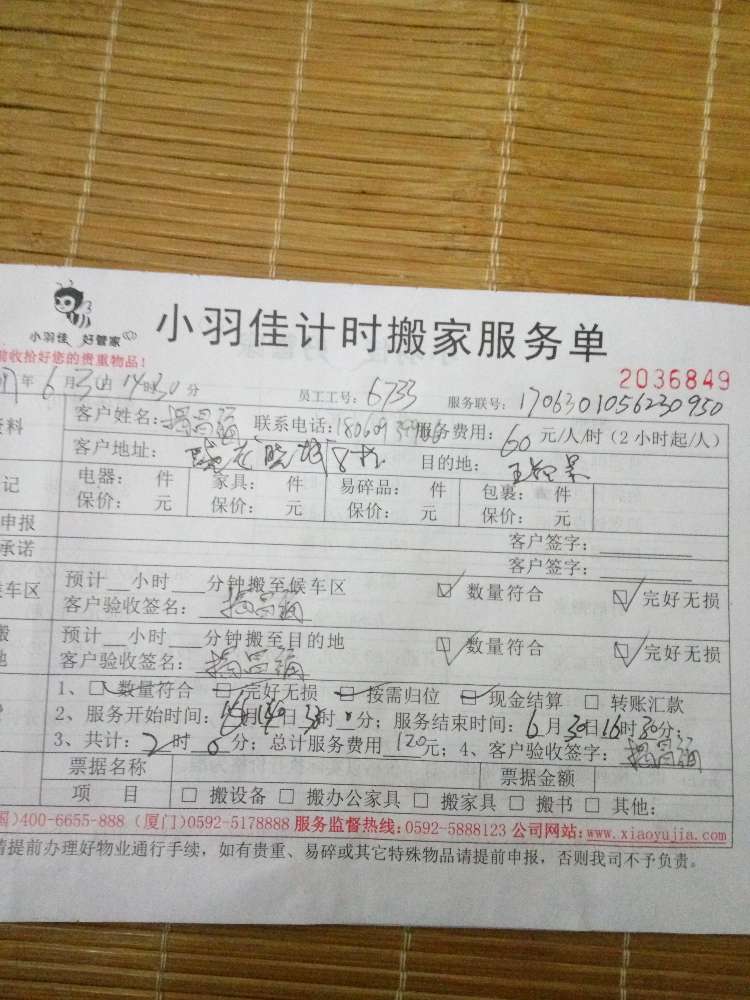 小羽佳 好管家
小羽佳计时搬家服务单
前收拾好您的贵重物品！
2036849
年6月30日14时30分 员工工号：6733 服务联号：1706301056230950
资料 客户姓名： 联系电话： 服务费用：60元/人/时（2小时起/人）
客户地址： 目的地：
记 电器： 件 家具： 件 易碎品： 件 包裹： 件
保价： 元 保价： 元 保价： 元 保价： 元
申报 客户签字：
承诺 客户签字：
候车区 预计 小时 分钟搬至候车区 ☑ 数量符合 ☑ 完好无损
客户验收签名：
搬 预计 小时 分钟搬至目的地 ☑ 数量符合 ☑ 完好无损
地 客户验收签名：
1、☑ 数量符合 ☑ 完好无损 ☑ 按需归位 ☑ 现金结算 □ 转账汇款
2、服务开始时间： 月 日 时 分；服务结束时间：6月30日16时30分；
3、共计：2时0分；总计服务费用120元；4、客户验收签字：
票据名称 票据金额
项 目 □ 搬设备 □ 搬办公家具 □ 搬家具 □ 搬书 □ 其他：
国)400-6655-888 (厦门)0592-5178888 服务监督热线:0592-5888123 公司网站:www.xiaoyujia.com
请提前办理好物业通行手续，如有贵重、易碎或其它特殊物品请提前申报，否则我司不予负责。